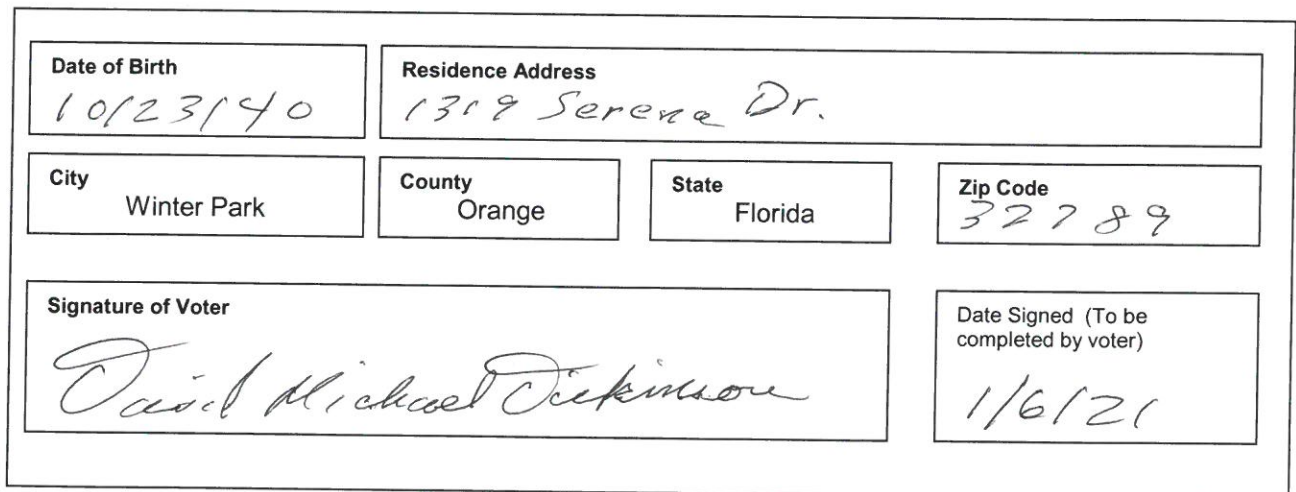 Date of Birth
10/23/40
Residence Address
1319 Serena Dr.
City
Winter Park
County
Orange
State
Florida
Zip Code
32789
Signature of Voter
David Michael Dickinson
Date Signed (To be
completed by voter)
1/6/21